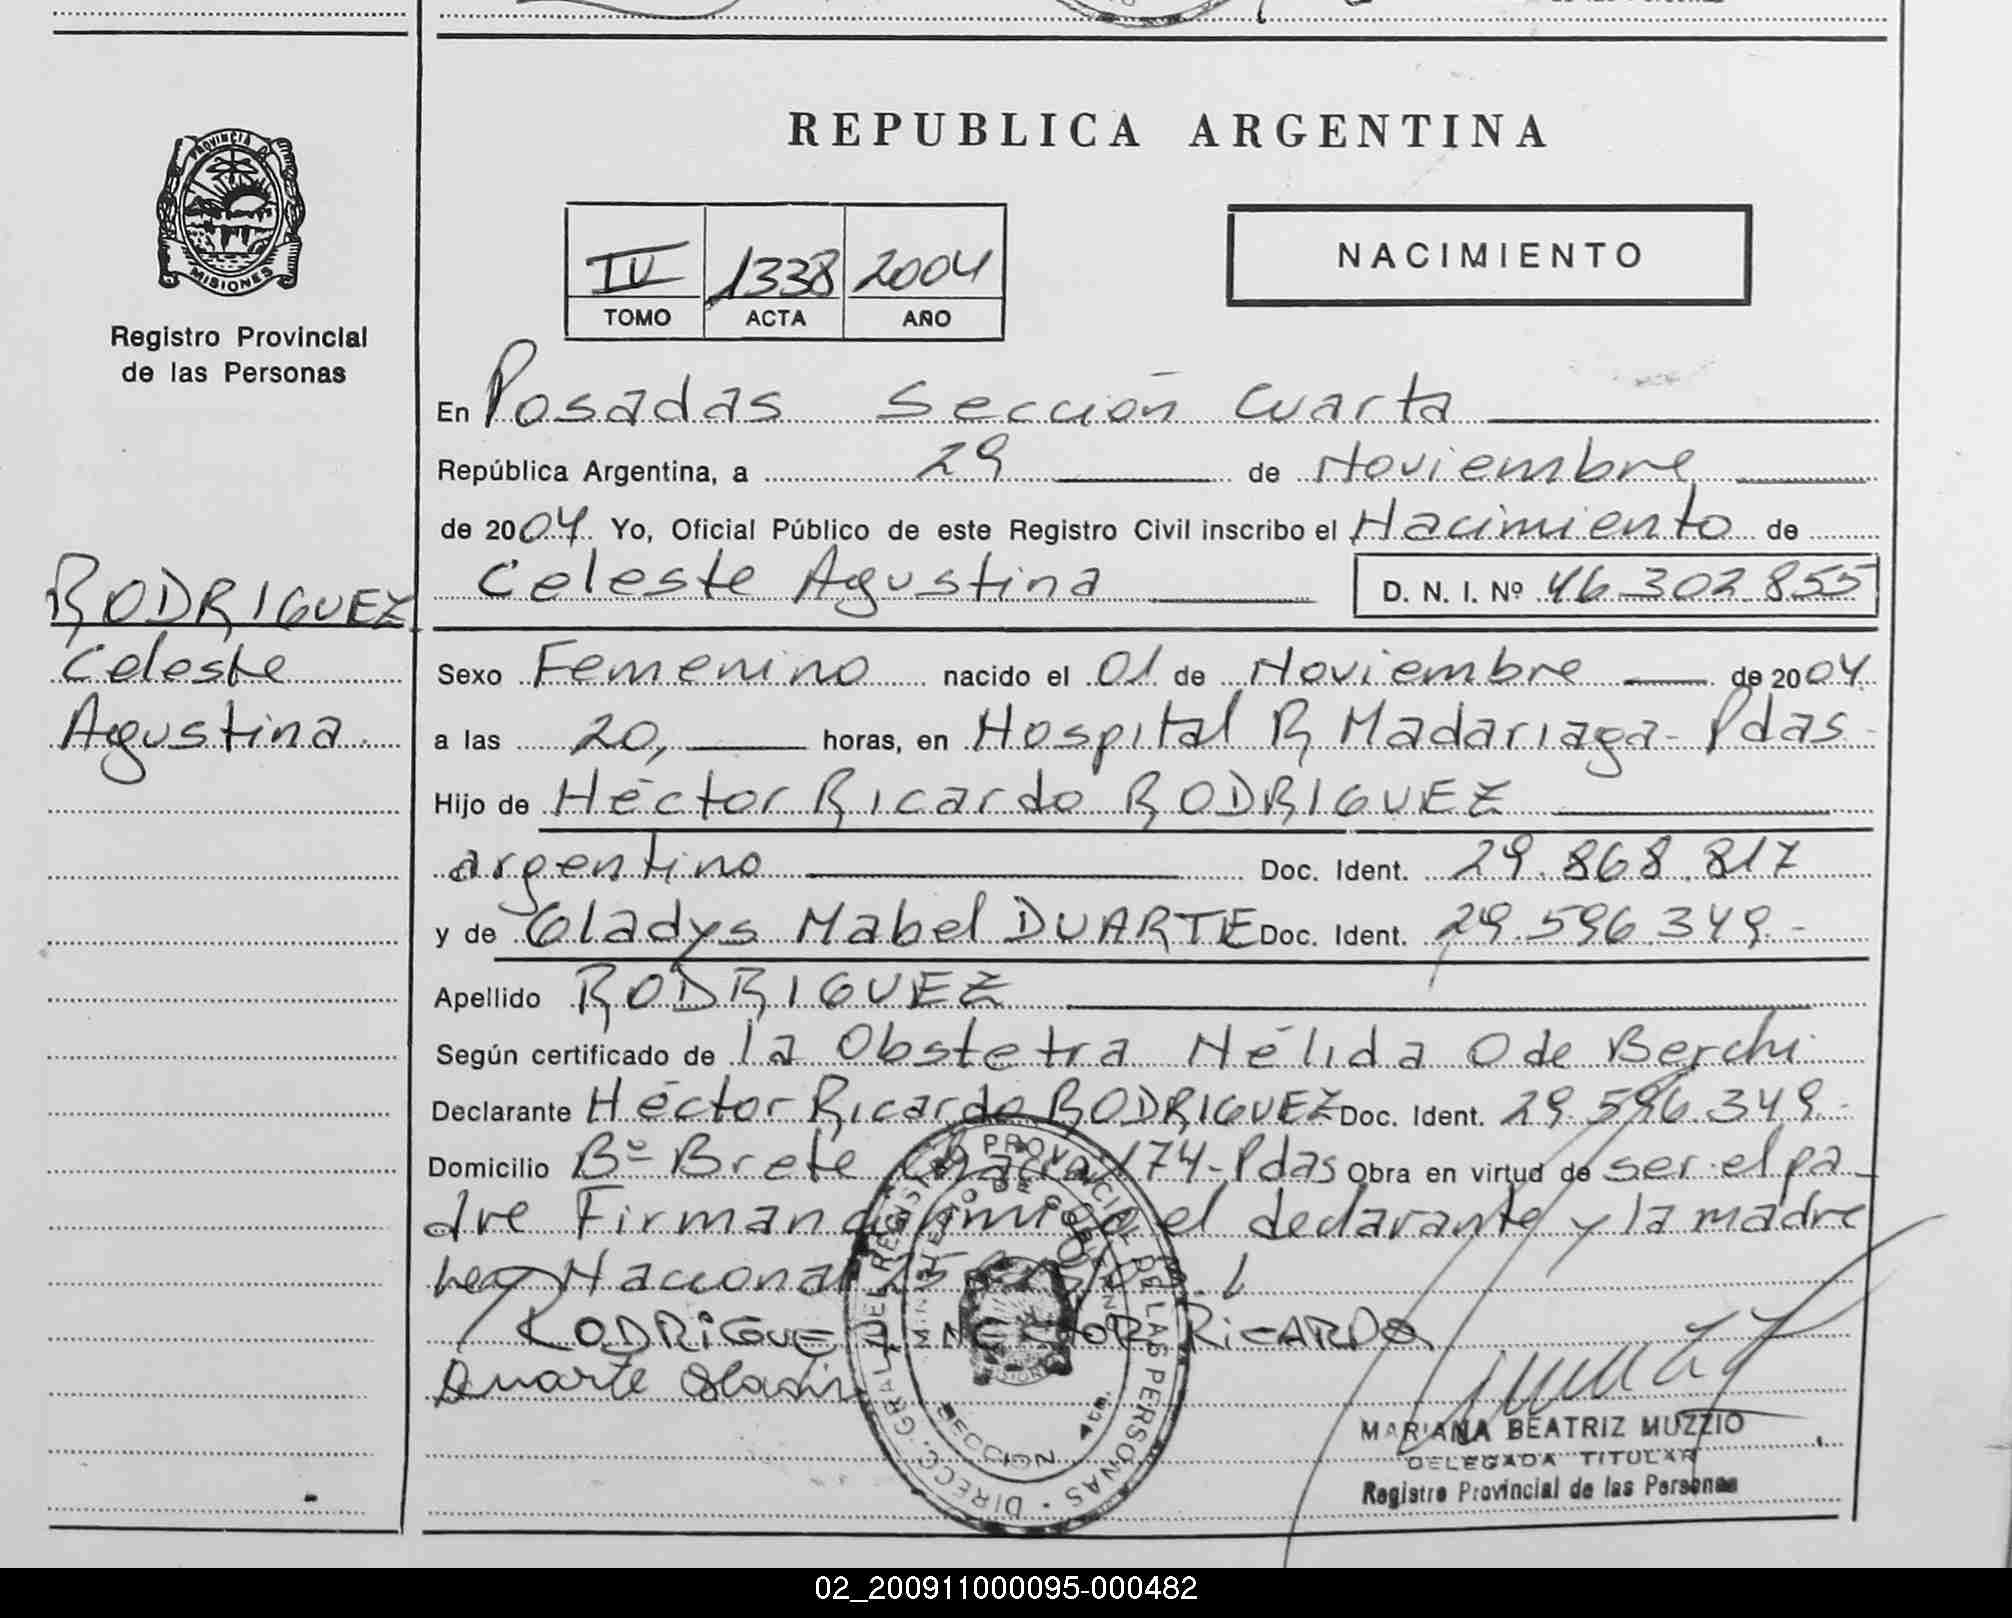 REPUBLICA ARGENTINA
PROVINCIA D
MISIONES
Registro Provincial
de las Personas
IV 1338 2004
TOMO ACTA AÑO
NACIMIENTO
En Posadas Sección Cuarta
República Argentina, a 29 de Noviembre
de 2004. Yo, Oficial Público de este Registro Civil inscribo el Nacimiento de
Celeste Agustina D. N. I. Nº 46.302.855
RODRIGUEZ
Celeste
Agustina
Sexo Femenino nacido el 01 de Noviembre de 2004
a las 20, horas, en Hospital R Madariaga - Pdas -
Hijo de Héctor Ricardo RODRIGUEZ
argentino Doc. Ident. 29.868.817
y de Gladys Mabel DUARTE Doc. Ident. 29.596.349.-
Apellido RODRIGUEZ
Según certificado de la Obstetra Nélida O de Berchi
Declarante Héctor Ricardo RODRIGUEZ Doc. Ident. 29.596.349.-
Domicilio Bº Brete Chacra 174- Pdas Obra en virtud de ser el pa-
dre Firman conmigo el declarante y la madre
Ley Nacional
RODRIGUEZ HECTOR RICARDO
Duarte Gladis
DIRECC. GRAL DEL REGISTRO PROVINCIAL DE LAS PERSONAS
MINISTERIO DE GOBIERNO
SECCION 4ta.
MARIANA BEATRIZ MUZZIO
DELEGADA TITULAR
Registro Provincial de las Personas
02_200911000095-000482